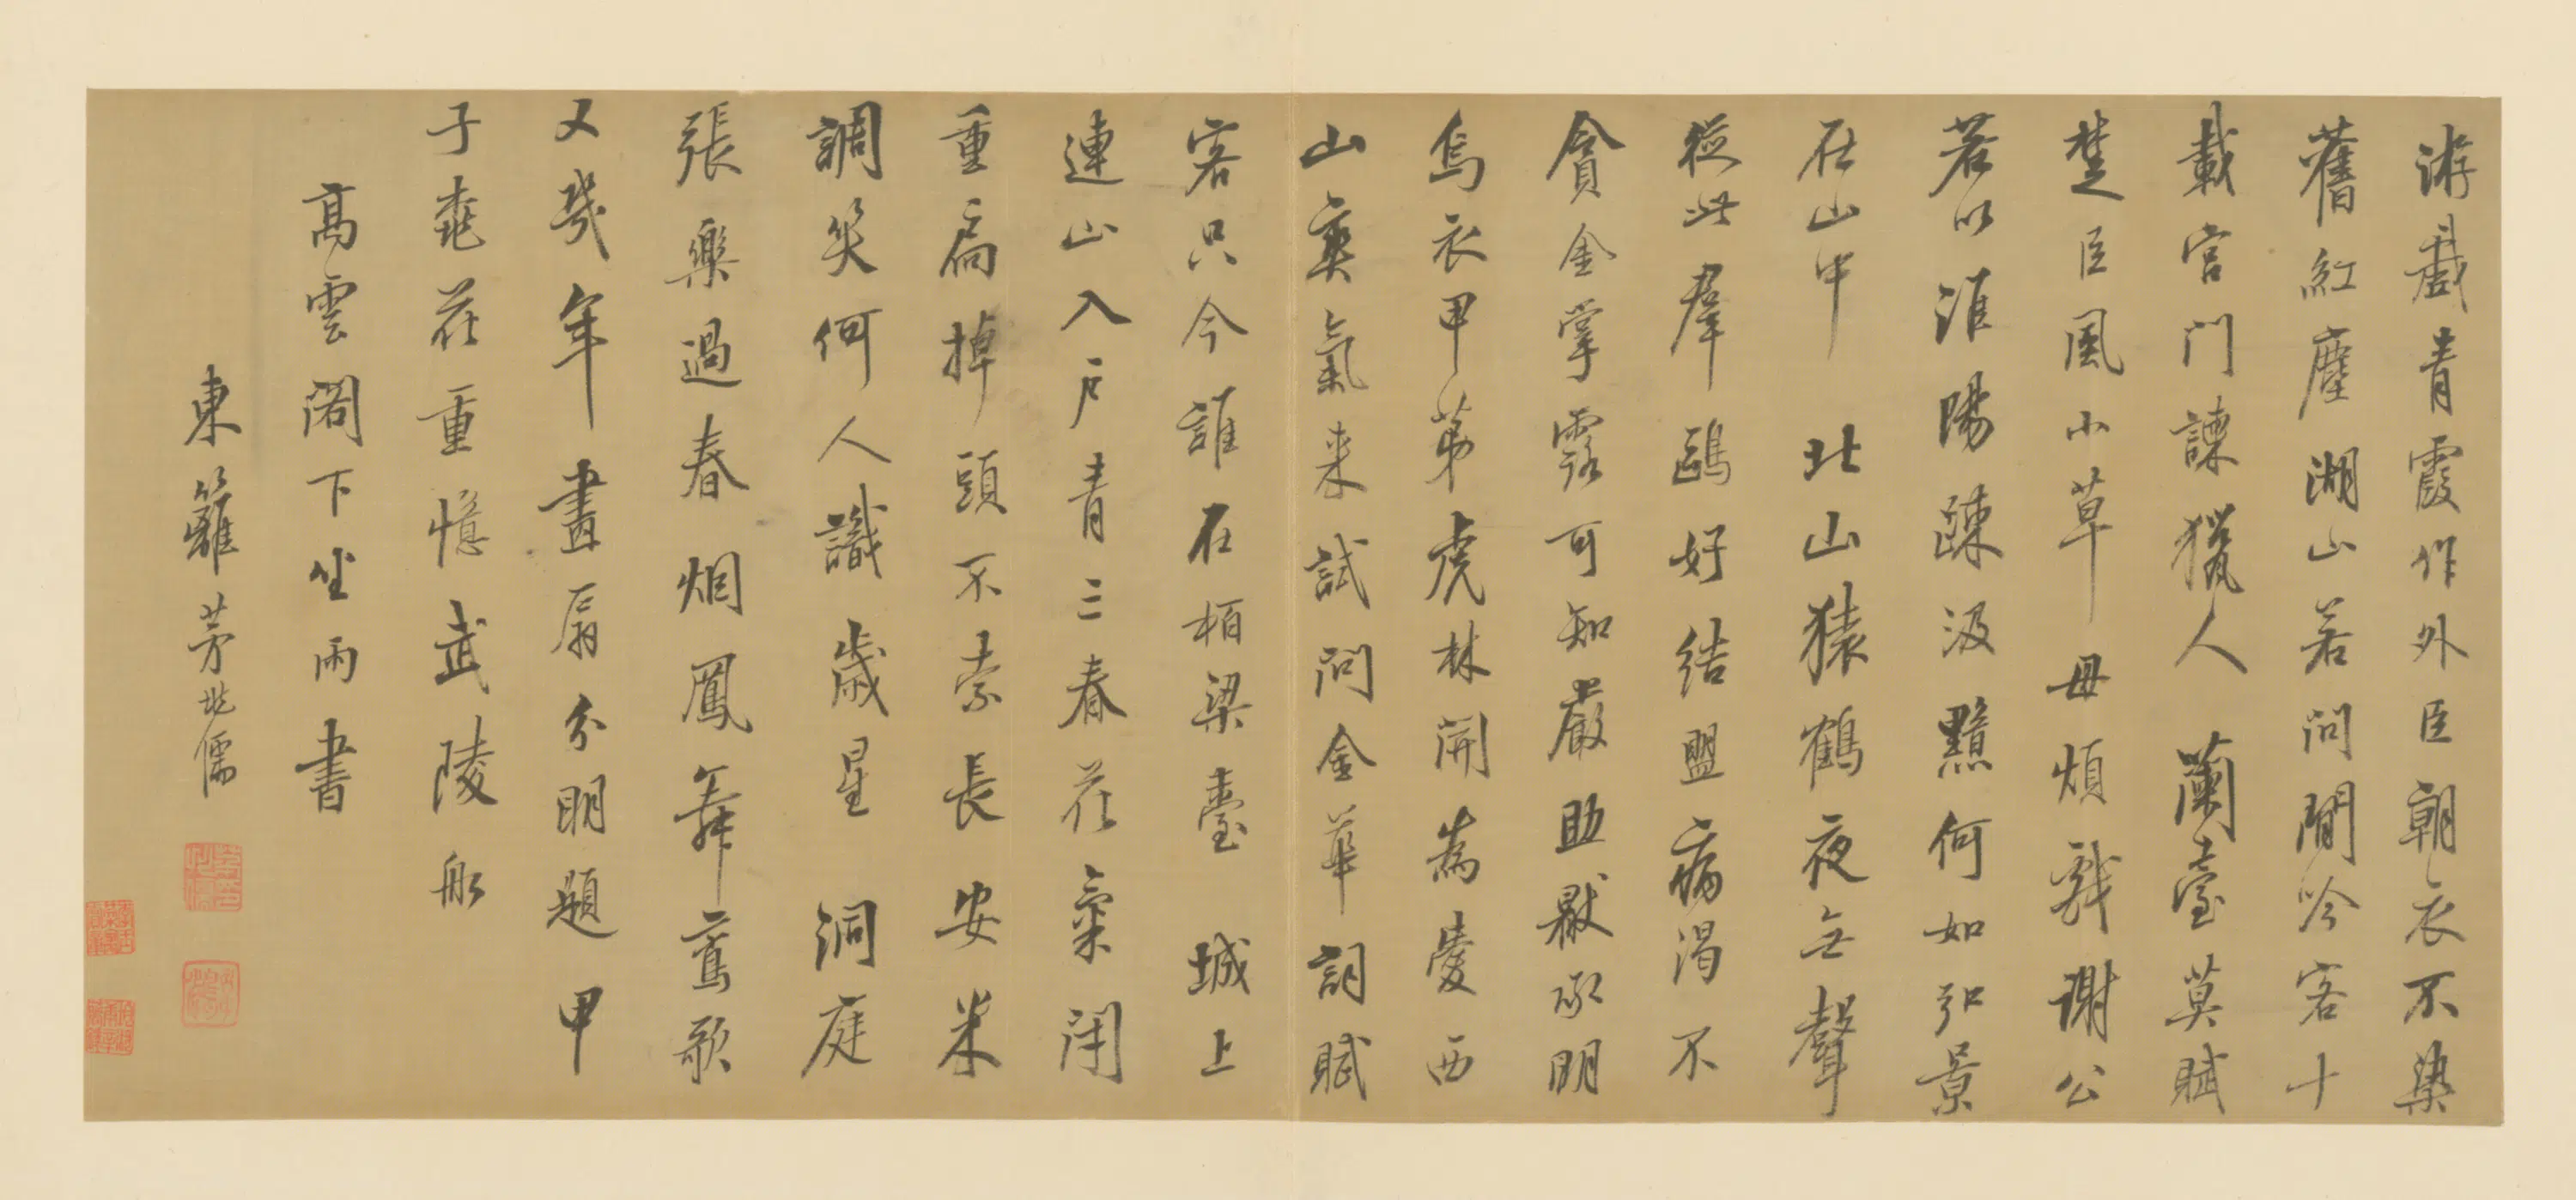 游戲青霞作外臣朝衣不染
舊紅塵湖山若問閒吟客十
載官門諫獵人 蘭臺莫賦
楚臣風小草毋煩戲謝公
若以淮陽疎汲黯何如弘景
在山中 北山猿鶴夜無聲
從此群鷗好結盟病渴不
貪金掌露可知嚴助厭承明
烏衣甲第虎林開為愛西
山爽氣来試問金華詞賦
客只今誰在栢梁臺 城上
連山入戶青三春花氣閉
重扃掉頭不索長安米
調笑何人識歲星 洞庭
張樂過春烟鳳舞鸞歌
又幾年畫扇分明題甲
子桃花重憶武陵船
高雲閣下坐雨書
東籬 茅兆儒